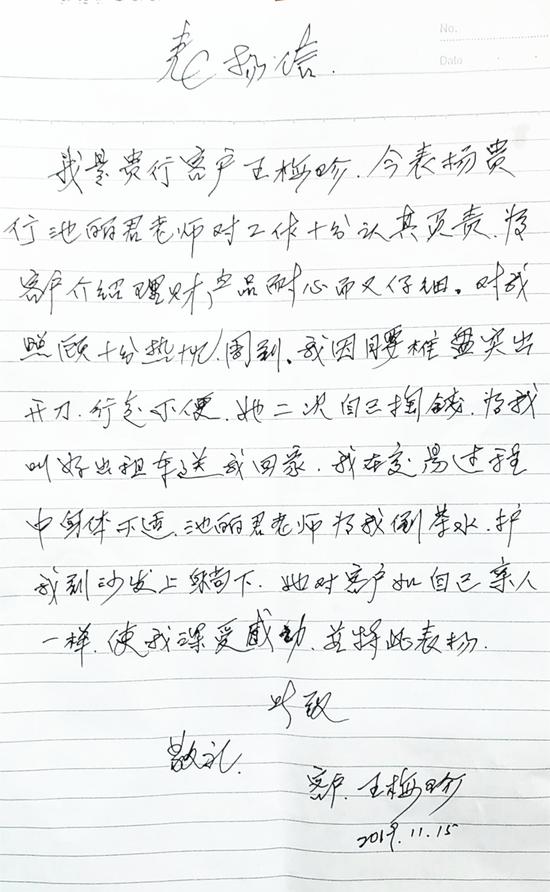 No.
Date
表扬信.
我是贵行客户王梅珍.今表扬贵
行池丽君老师对工作十分认真负责.为
客户介绍理财产品耐心而又仔细。对我
照顾十分热忱.周到.我因腰椎盘突出
开刀.行走不便.她二次自己掏錢.为我
叫好出租车送我回家.我在交易过程
中身体不适.池丽君老师为我倒茶水.护
我到沙发上躺下.她对客户如自己亲人
一样.使我深受感动.并将此表扬.
此致
敬礼.
客户.王梅珍
2019.11.15